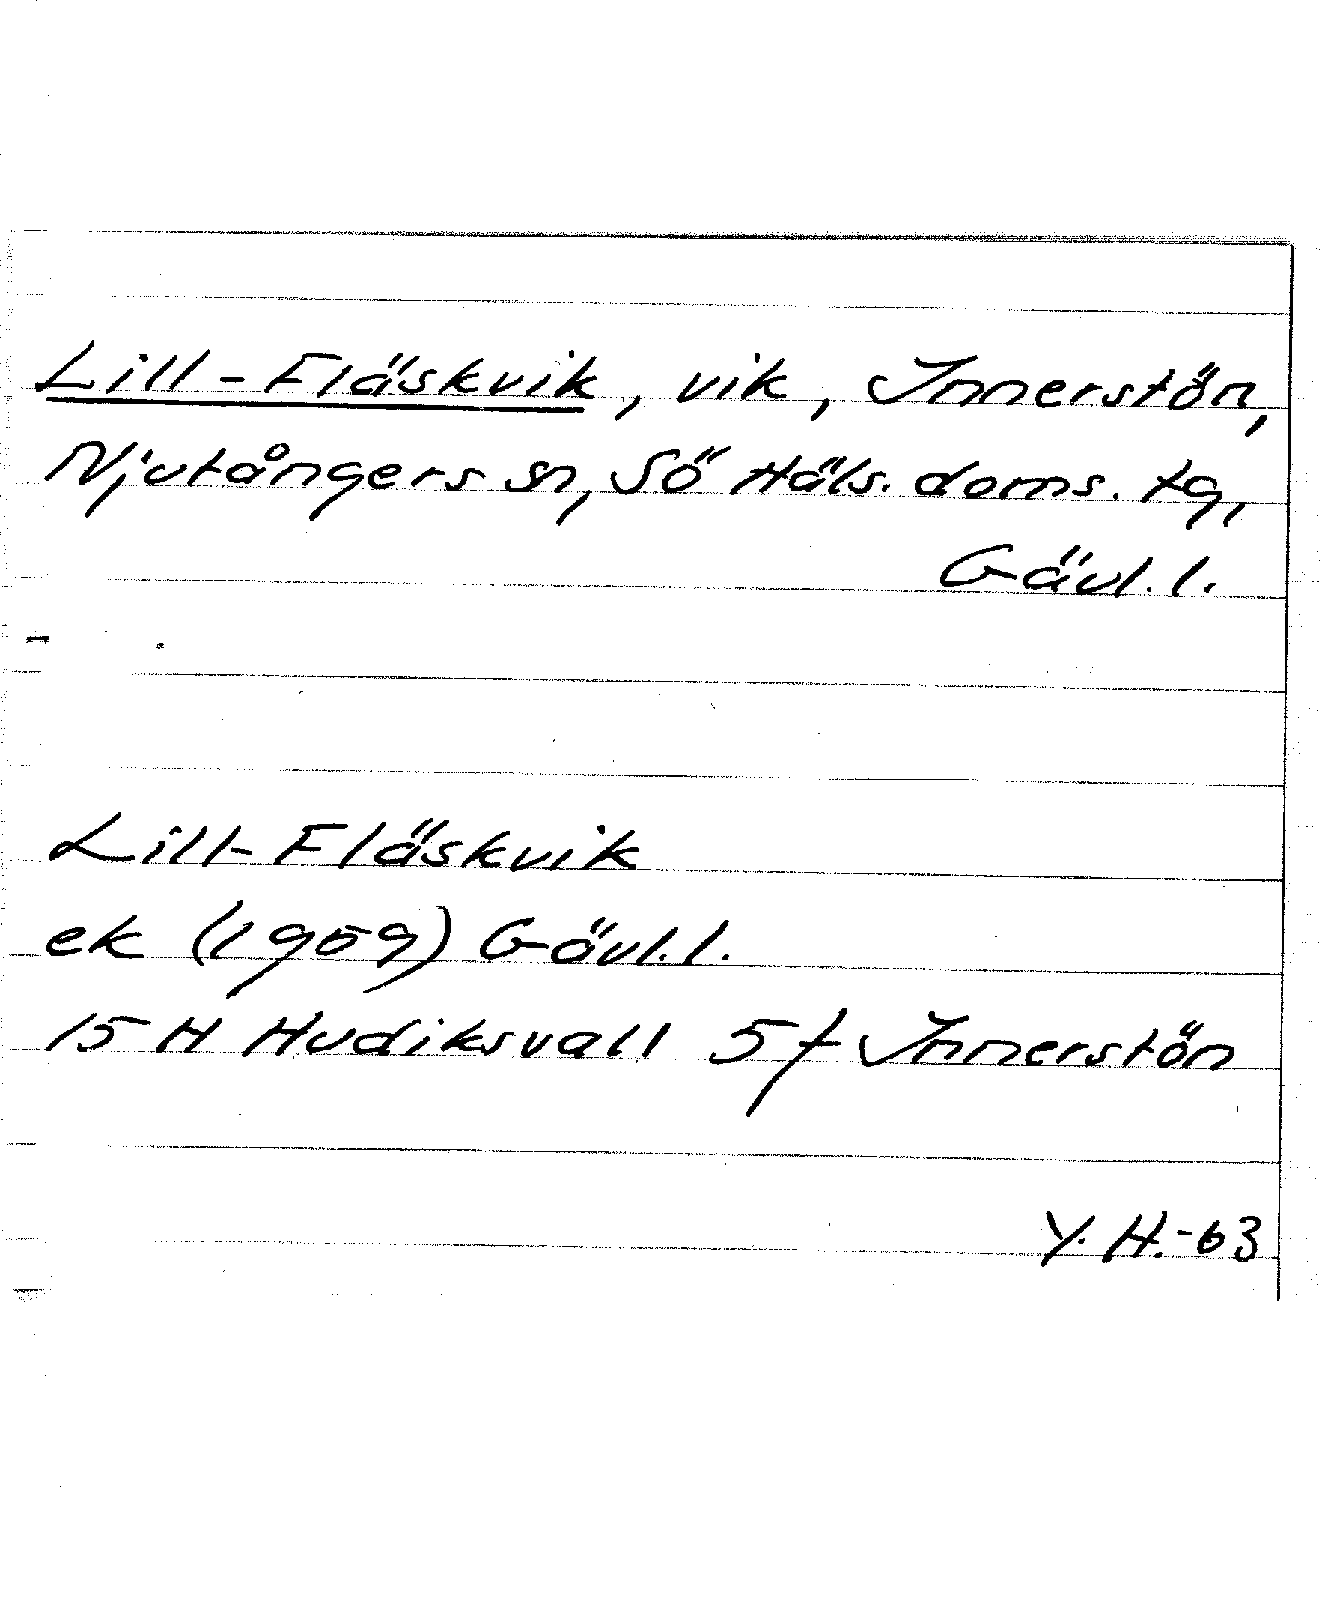 Lill-Fläskvik, vik, Innerstön,
Njutångers sn, Sö Häls. doms. tg,
Gävl. l.
Lill-Fläskvik
ek (1959) Gävl. l.
15 H Hudiksvall 5f Innerstön
Y. H.-63